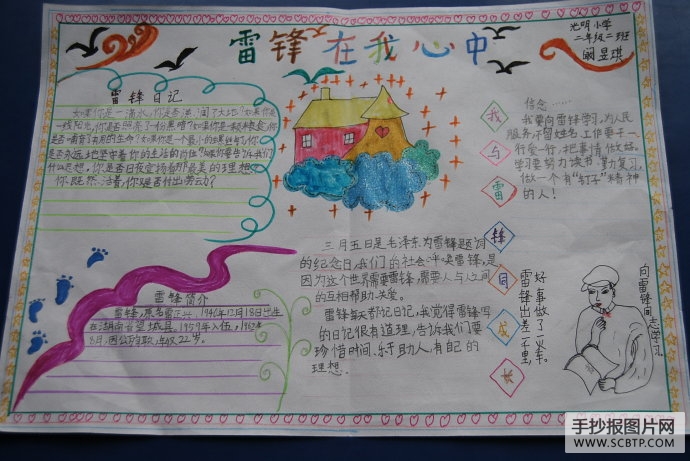 雷锋在我心中
光明小学
二年级二班
阚昱琪
雷锋日记
如果你是一滴水,你是否滋润了大地?如果你是
一线阳光,你是否照亮了一份黑暗?如果你是一颗粮食,你
是否哺育了有用的生命?如果你是一个最小的螺丝钉,你
是否永远地坚守着你的生活的岗位?如果你要告诉我们
什么思想,你是否日夜宣扬着那最美的理想。
你既然活着,你又是否付出劳动?
雷锋简介
雷锋,原名雷正兴,1940年12月18日出生
在湖南省望城县。1959年入伍,1962年
8月,因公殉职,年仅22岁。
三月五日是毛泽东为雷锋题词
的纪念日,我们的社会呼唤雷锋,是
因为这个世界需要雷锋,需要人与人之间
的互相帮助、关爱。
雷锋每天都记日记,我觉得雷锋写
的日记很有道理,告诉我们要
珍惜时间、乐于助人,有自己的
理想。
我
与
雷
锋
同
成
长
信念……
我要向雷锋学习,为人民
服务不留姓名,工作要干一
行爱一行,把事情做好。
学习要努力读书,努力复习,
做一个有“钉子”精神
的人!
好事做了一火车。
雷锋出差一千里,
向雷锋同志学习
手抄报图片网
WWW.SCBTP.COM